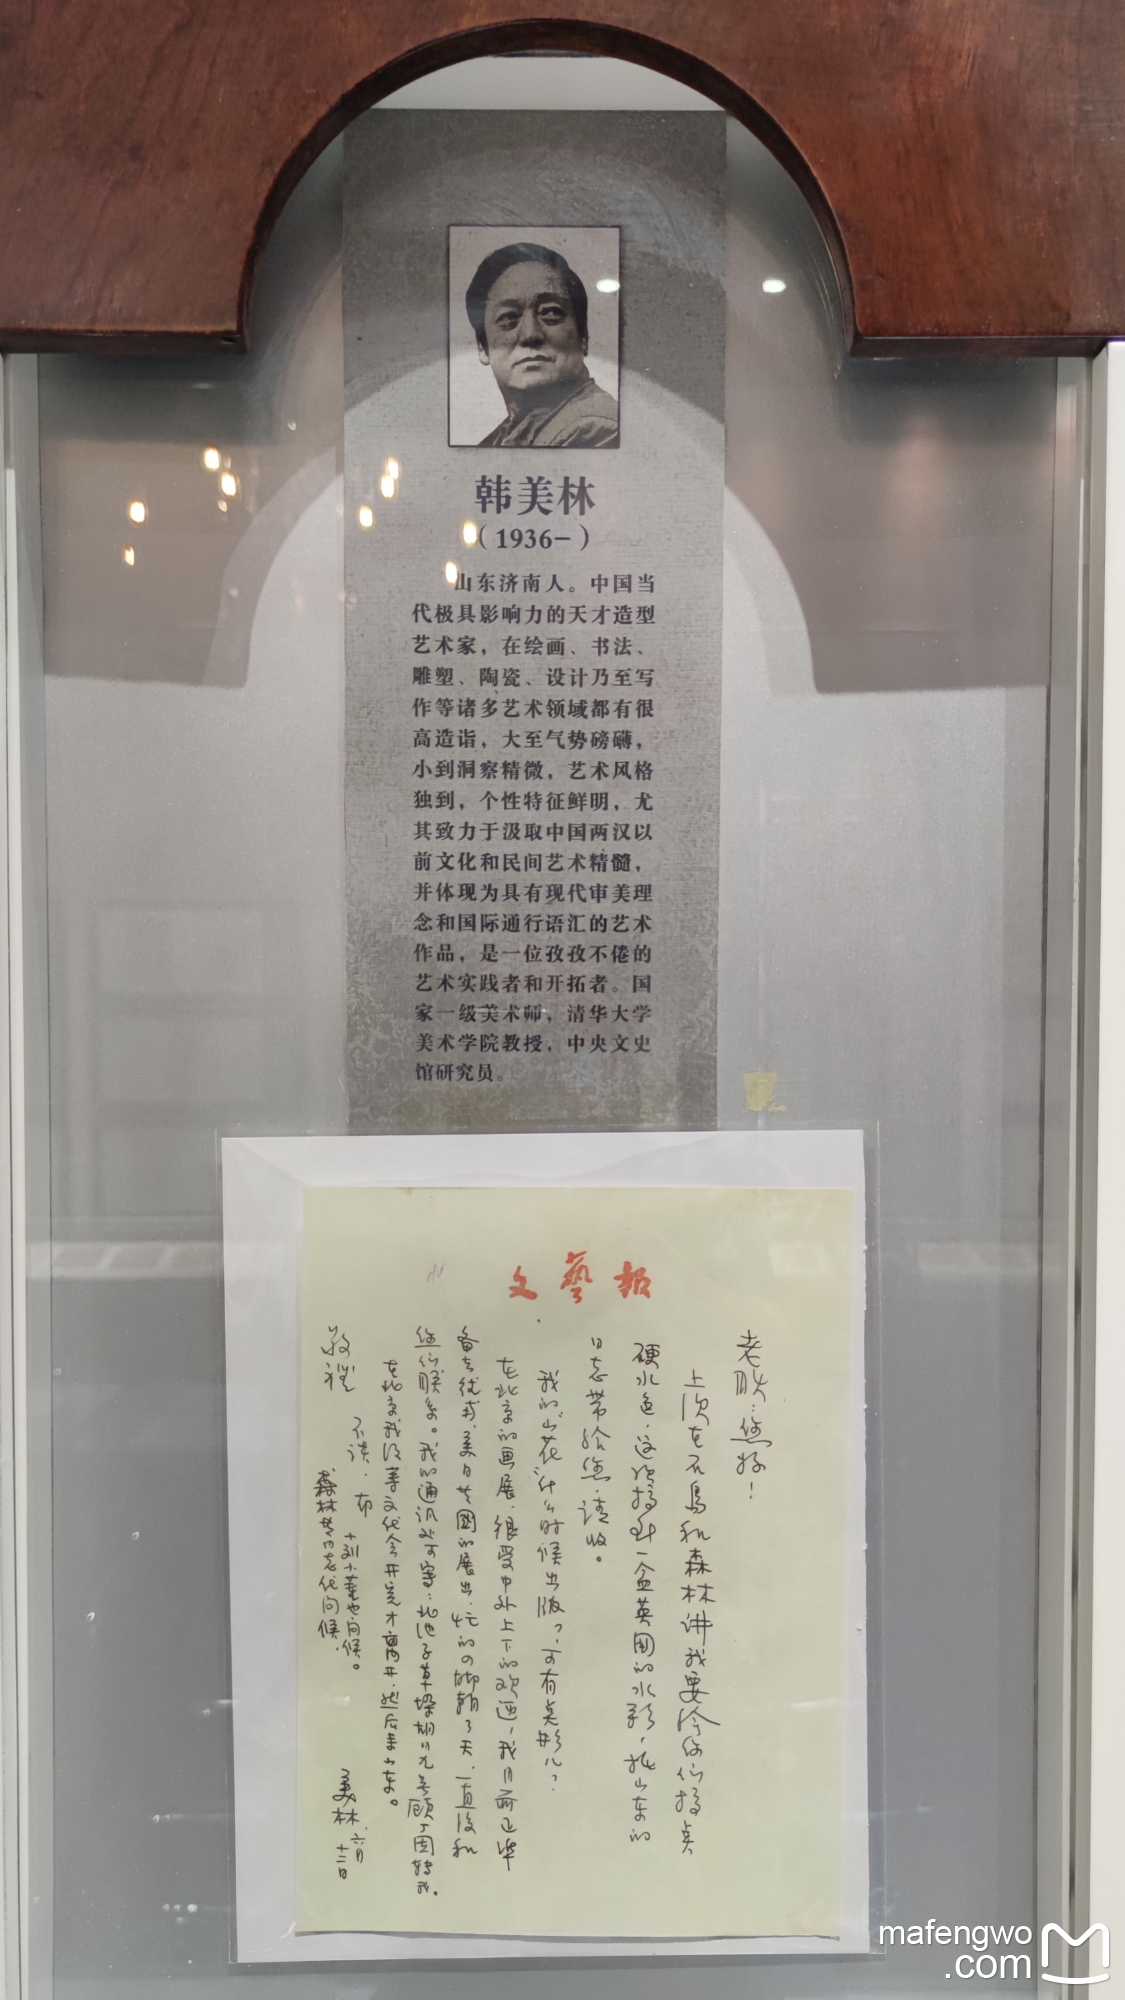 韩美林
（1936－）
山东济南人。中国当
代极具影响力的天才造型
艺术家，在绘画、书法、
雕塑、陶瓷、设计乃至写
作等诸多艺术领域都有很
高造诣，大至气势磅礴，
小到洞察精微，艺术风格
独到，个性特征鲜明，尤
其致力于汲取中国两汉以
前文化和民间艺术精髓，
并体现为具有现代审美理
念和国际通行语汇的艺术
作品，是一位孜孜不倦的
艺术实践者和开拓者。国
家一级美术师，清华大学
美术学院教授，中央文史
馆研究员。
文藝報
老肽：您好！
上次在石岛和森林讲我要给你们搞点
硬水色，这次搞到一盒英国的水彩，托山东的
日志带给您，请收。
我的“山花”什么时候出版？可有点形儿？
在北京的画展，很受中外上下的欢迎，我目前正准
备去彼
美日英国的展出，忙的
朝了天，一直没和
您们联系。我的通讯处可写：北池子草垛胡
号顾丁园转我。
在北京我得等文代会开完才离开，然后来山东。
不谈，布
敬礼
小刘小董也问候。
森林等同志代问候，
美林，六月
十二日
mafengwo
.com